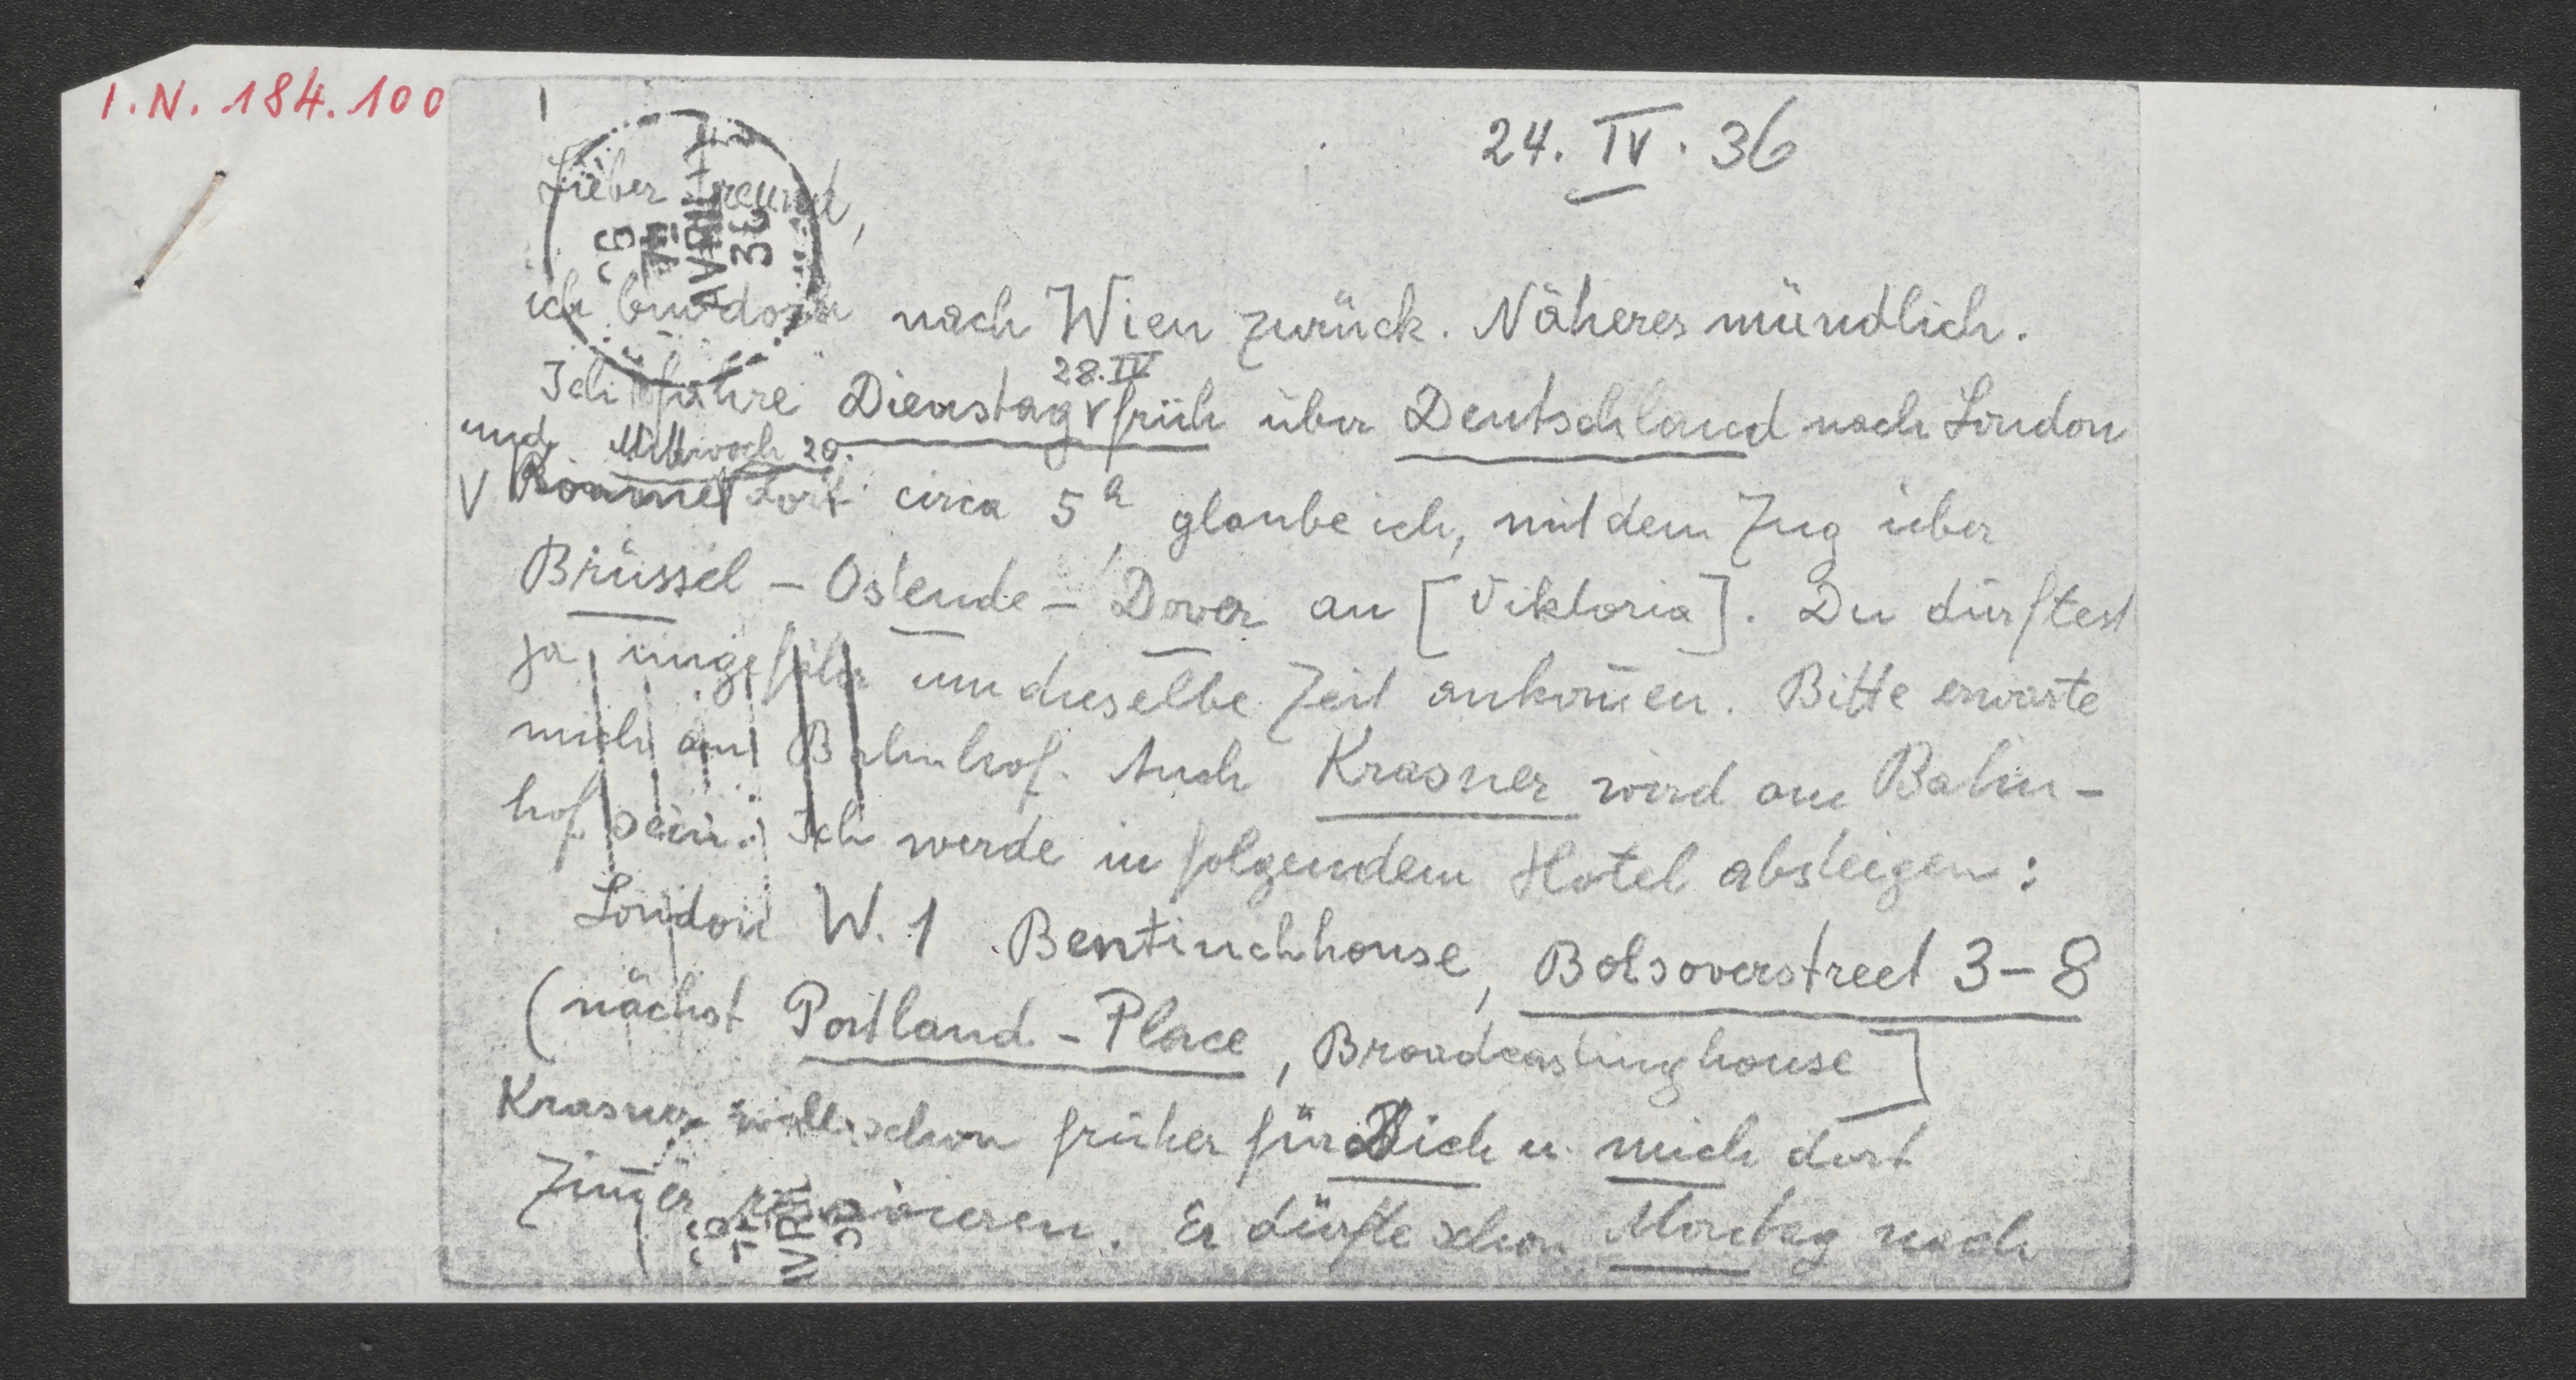 I.N. 184.100
24. IV. 36
Lieber Freund,
ich bin doch nach Wien zurück. Näheres mündlich.
28. IV
Ich fahre Dienstag v früh über Deutschland nach London
und Mittwoch 29.
V komme dort circa 5h, glaube ich, mit dem Zug über
Brüssel – Ostende – Dover an [Viktoria]. Du dürftest
ja ungefähr um dieselbe Zeit ankom̄en. Bitte erwarte
mich am Bahnhof. Auch Krasner wird am Bahn-
hof sein. Ich werde in folgendem Hotel absteigen:
London W. 1 Bentinckhouse, Bolsoverstreet 3–8
(nächst Portland – Place, Broadcastinghouse]
Krasner will schon früher für Dich u. mich dort
Zim̄er reservieren. Er dürfte schon Montag nach
AVRIL
36